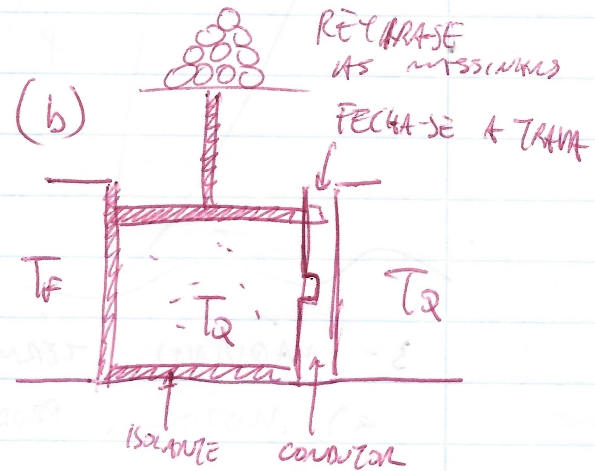 RETIRA-SE
AS MASSINHAS
(b)
FECHA-SE A TRAVA
T_F
T_Q
T_Q
ISOLANTE
CONDUTOR